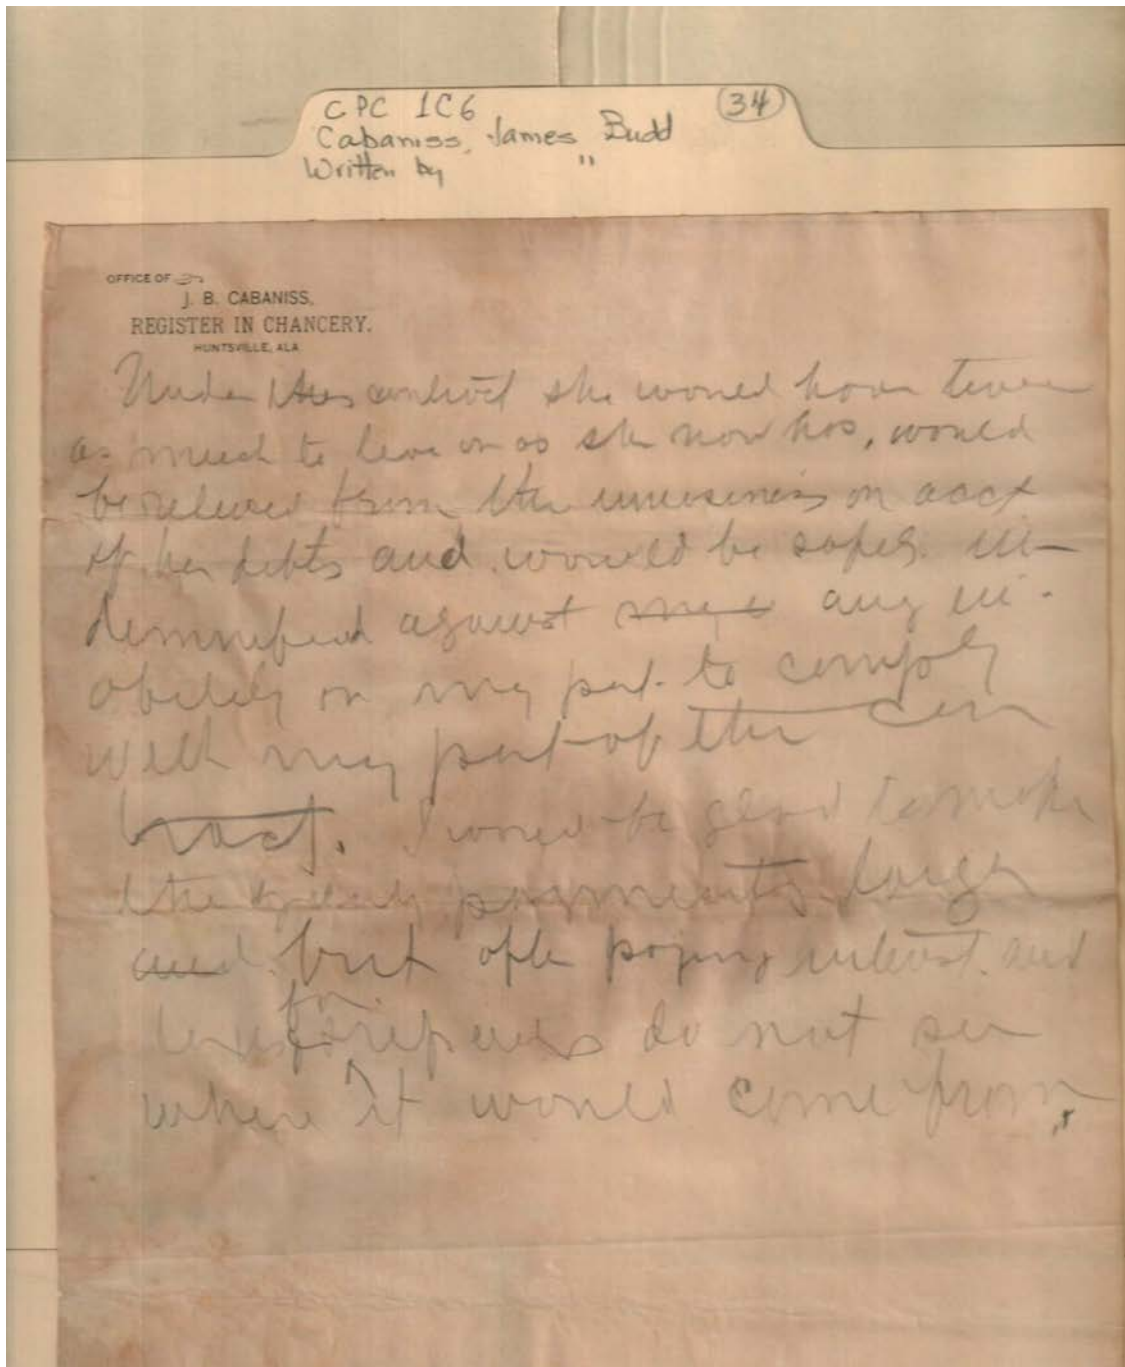 CPC 1C6
34
Cabaniss, James Budd
Written by "
OFFICE OF
J. B. CABANISS,
REGISTER IN CHANCERY.
HUNTSVILLE, ALA
Under this contract she would have twice
as much to live on as she now has, would
be relieved from the uneasiness on acct
of her debts and would be safely in-
demnified against any in-
ability on my part to comply
with my part of the con
tract. I would be glad to make
the yearly payments larger
and but after paying interest and
for repairs do not see
where it would come from,